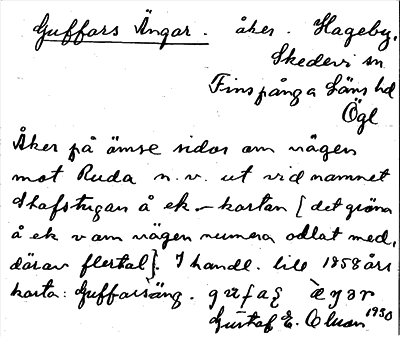 Guffars Ängar. åker. Hageby,
Skedevi sn
Finspånga Läns hd
Ögl
Åker på ömse sidor om vägen
mot Ruda n.v. ut vid namnet
å ek.-kartan [det gröna
å ek v om vägen numera odlat med,
därav flertal]. I handl. till 1858 års
karta: Guffarsäng.
Gustaf E. 1930